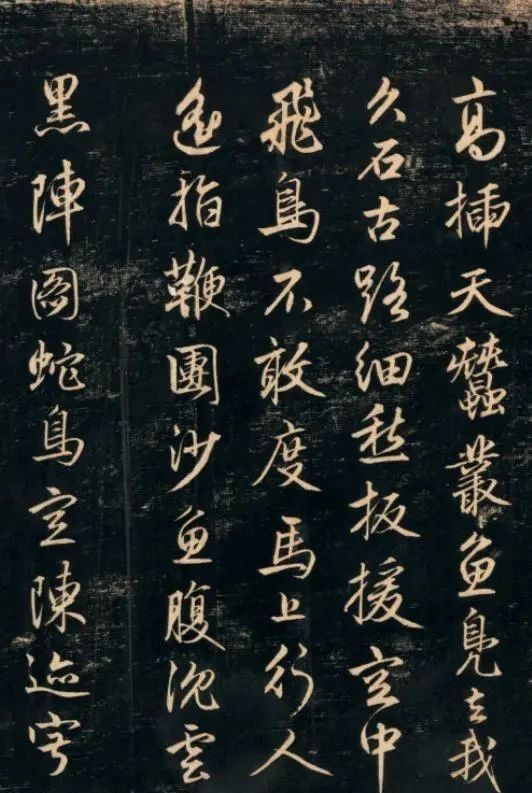 高插天蠶叢魚鳧去我
久石古路細愁扳援空中
飛鳥不敢度馬上行人
遙指鞭團沙魚腹沈雲
黑陣圖蛇鳥空陳迹寧